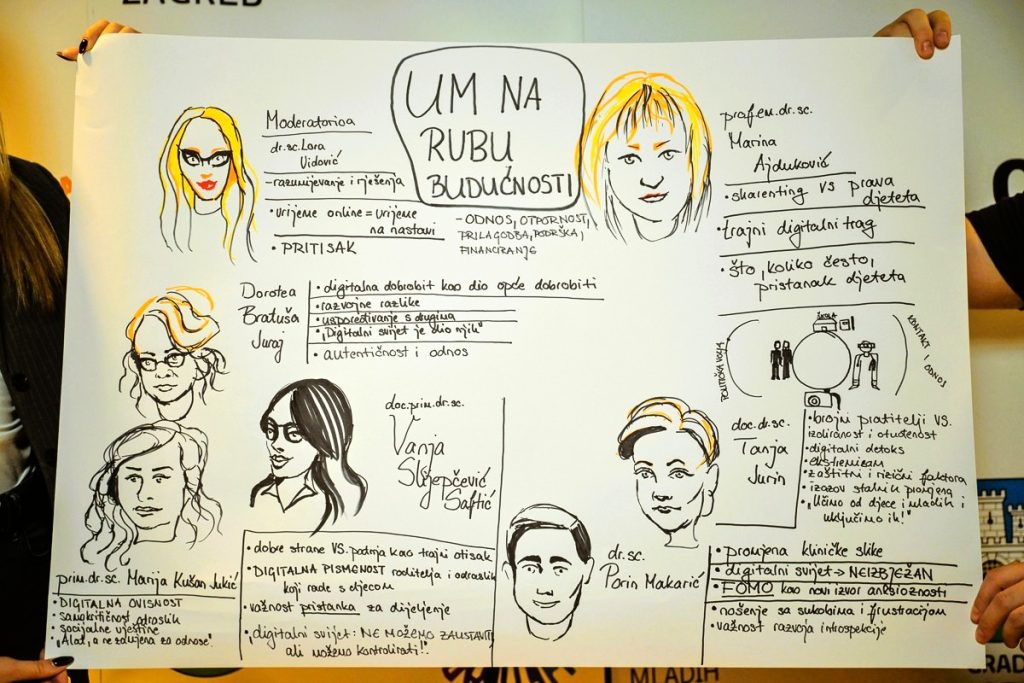 ZAGREB
UM NA
RUBU
BUDUĆNOSTI
- ODNOS, OTPORNOST,
PRILAGODBA, PODRŠKA,
FINANCIRANJE
Moderatorica
dr.sc. Lora
Vidović
- razumijevanje i rješenja
• vrijeme online = vrijeme
na nastavi
• PRITISAK
prof.em.dr.sc.
Marina
Ajduković
• sharenting VS prava
djeteta
• trajni digitalni trag
• što, koliko često,
pristanak djeteta
ŠKOLA
POLITIČKA VOLJA
KONTAKT I ODNOS
Dorotea
Bratuša
Juraj
• digitalna dobrobit kao dio opće dobrobiti
• razvojne razlike
• uspoređivanje s drugima
• "Digitalni svijet je dio njih"
• autentičnost i odnos
doc.prim.dr.sc.
Vanja
Slijepčević
Saftić
• dobre strane VS. podnja kao trajni otisak
• DIGITALNA PISMENOST roditelja i odraslih
koji rade s djecom
• važnost pristanka za dijeljenje
• digitalni svijet: NE MOŽEMO ZAUSTAVITI
ali možemo kontrolirati!".
prim.dr.sc. Marija Kušan Jukić
• DIGITALNA OVISNOST
• samokritičnost odraslih
• socijalne vještine
• "Alat, a ne zamjena za odnose".
doc.dr.sc.
Tanja
Jurin
• brojni pratitelji VS.
izoliranost i otuđenost
• digitalni detoks
• ekstremizam
• zaštitni i rizični faktori
• izazov stalnih promjena
• "Učimo od djece i mladih i
uključimo ih!"
dr.sc.
Porin Makarić
• promjena kliničke slike
• digitalni svijet → NEIZBJEŽAN
• FOMO kao novi izvor anksioznosti
• nošenje sa sukobima i frustracijom
• važnost razvoja introspekcije
MLADIH
GRAD